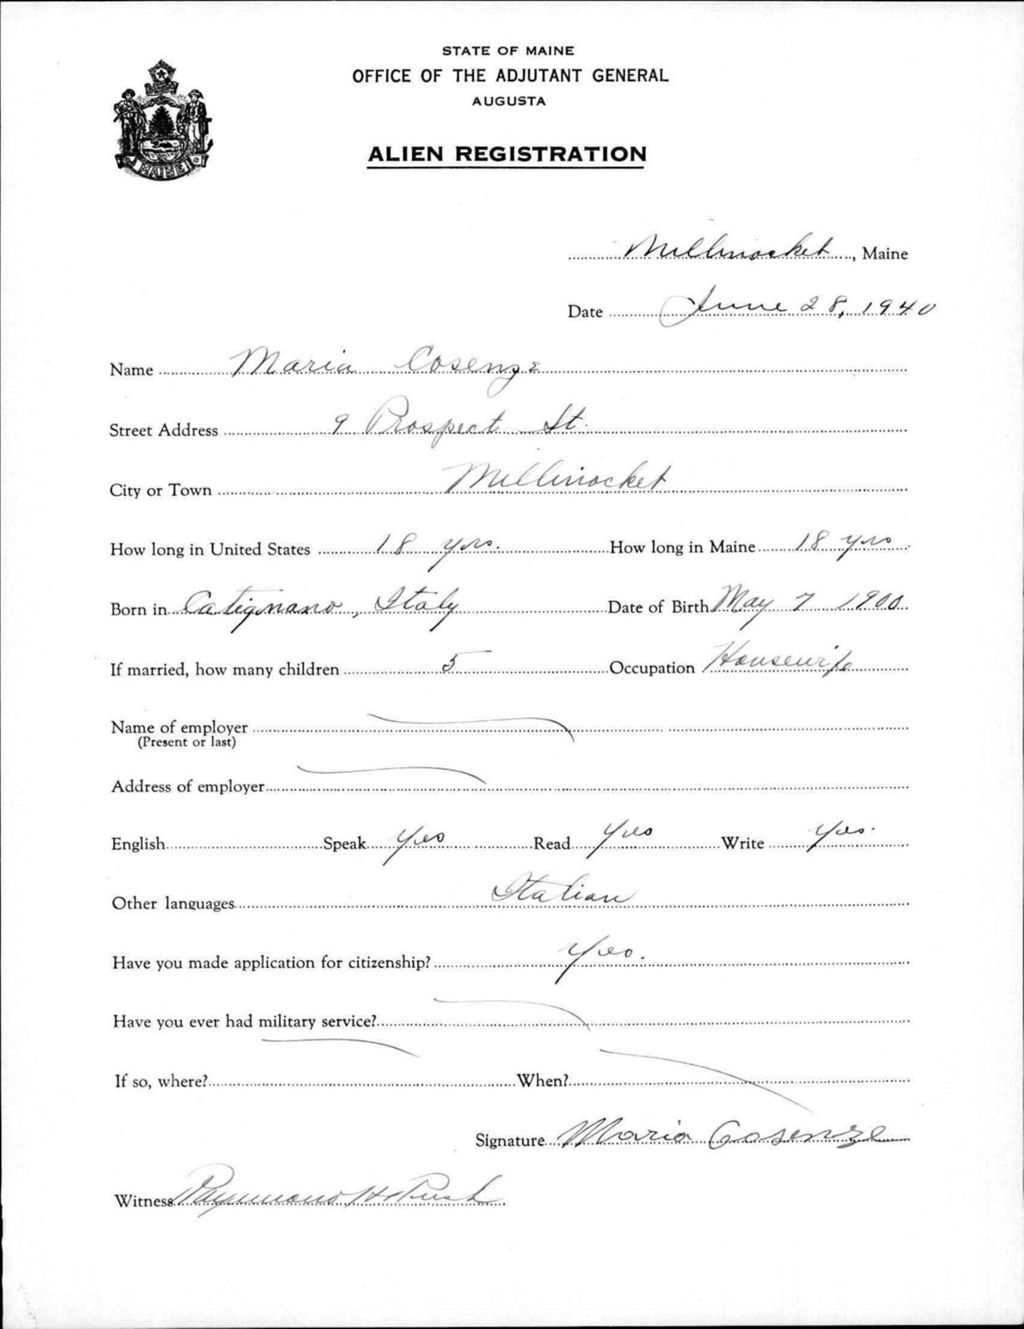 STATE OF MAINE
OFFICE OF THE ADJUTANT GENERAL
AUGUSTA
ALIEN REGISTRATION
MAINE
Millinocket, Maine
Date June 28, 1940
Name Maria Cosenze
Street Address 9 Prospect St.
City or Town Millinocket
How long in United States 18 yrs. How long in Maine 18 yrs
Born in Catignano, Italy Date of Birth May 7 1900
If married, how many children 5 Occupation Housewife
Name of employer
(Present or last)
Address of employer
English Speak Yes Read Yes Write Yes.
Other languages Italian
Have you made application for citizenship? Yes.
Have you ever had military service?
If so, where? When?
Signature Maria Cosenze
Witness Raymond H